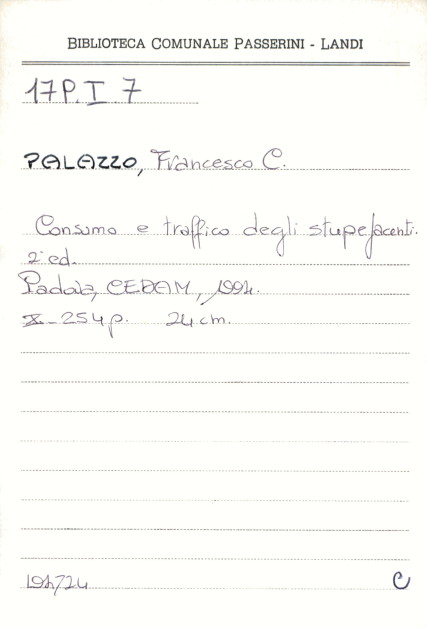 BIBLIOTECA COMUNALE PASSERINI - LANDI
17P.I 7
PALAZZO, Francesco C.
Consumo e traffico degli stupefacenti.
2ª ed.
Padova, CEDAM, 1994.
X-254p. 24cm.
194724
C